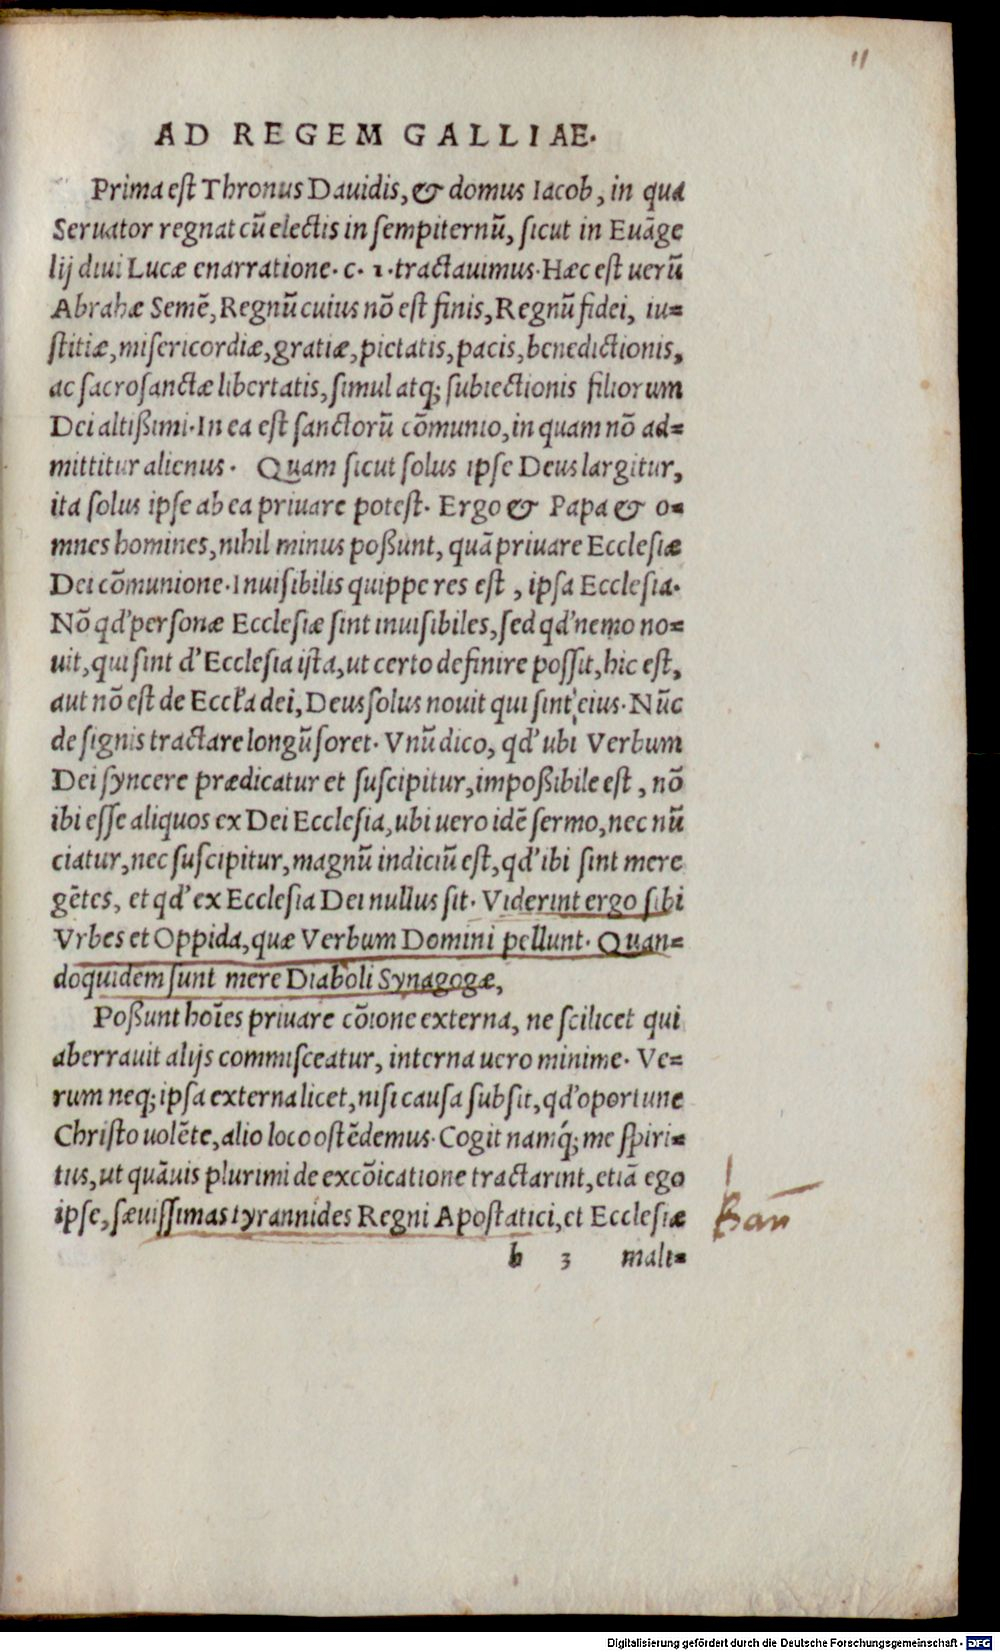 11
AD REGEM GALLIAE.
Prima est Thronus Dauidis, & domus Iacob, in qua
Seruator regnat cũ electis in sempiternũ, sicut in Euãge
lij diui Lucæ enarratione. c. 1. tractauimus. Hæc est uerũ
Abrahæ Semẽ, Regnũ cuius nõ est finis, Regnũ fidei, iu=
stitiæ, misericordiæ, gratiæ, pietatis, pacis, benedictionis,
ac sacrosanctæ libertatis, simul atq; subiectionis filiorum
Dei altißimi. In ea est sanctorũ cõmunio, in quam nõ ad=
mittitur alienus. Quam sicut solus ipse Deus largitur,
ita solus ipse ab ea priuare potest. Ergo & Papa & o=
mnes homines, nihil minus poßunt, quã priuare Ecclesiæ
Dei cõmunione. Inuisibilis quippe res est, ipsa Ecclesia.
Nõ qd' personæ Ecclesiæ sint inuisibiles, sed qd' nemo no=
uit, qui sint d' Ecclesia ista, ut certo definire possit, hic est,
aut nõ est de Eccła dei, Deus solus nouit qui sint eius. Nũc
de signis tractare longũ foret. Vnũ dico, qd' ubi Verbum
Dei syncere prædicatur et suscipitur, impoßibile est, nõ
ibi esse aliquos ex Dei Ecclesia, ubi uero idẽ sermo, nec nũ
ciatur, nec suscipitur, magnũ indiciũ est, qd' ibi sint mere
gẽtes, et qd' ex Ecclesia Dei nullus sit. Viderint ergo sibi
Vrbes et Oppida, quæ Verbum Domini pellunt. Quan=
doquidem sunt mere Diaboli Synagogæ,
Poßunt hoĩes priuare cõione externa, ne scilicet qui
aberrauit alijs commisceatur, interna uero minime. Ve=
rum neq; ipsa externa licet, nisi causa subsit, qd' oportune
Christo uolẽte, alio loco ostẽdemus. Cogit namq́; me spiri=
tus, ut quãuis plurimi de excõicatione tractarint, etiã ego
ipse, sæuissimas tyrannides Regni Apostatici, et Ecclesiæ
Ban
b 3 mali=
Digitalisierung gefördert durch die Deutsche Forschungsgemeinschaft - DFG